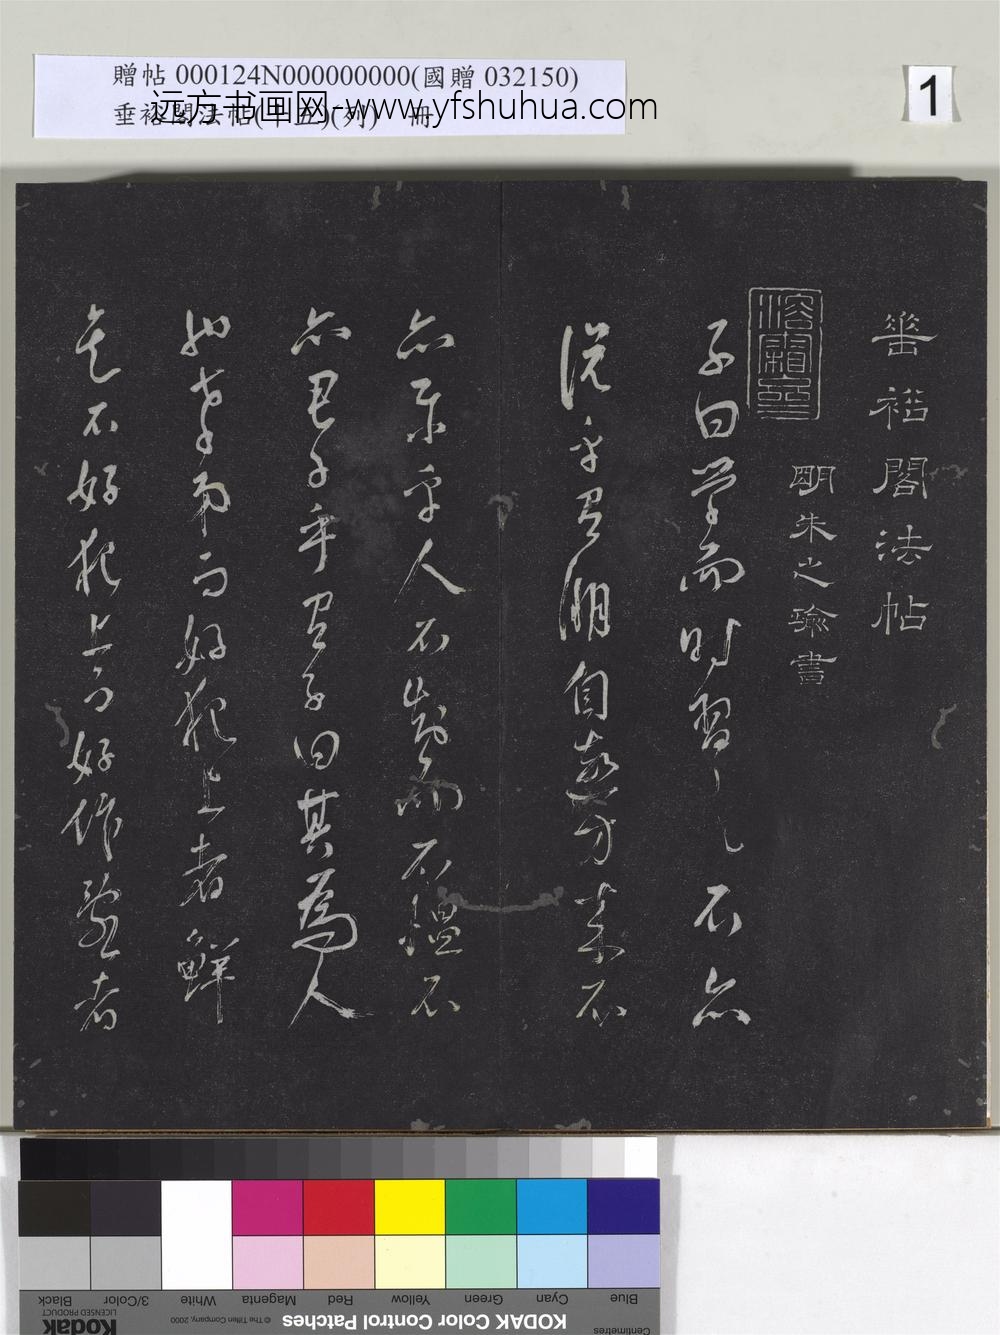 贈帖 000124N000000000(國贈 032150)
垂裕閣法帖(十五)(列) 冊
远方书画网-www.yfshuhua.com
1
垂裕閣法帖
明朱之瑜書
子曰學而時習之不亦
說乎有朋自遠方來不
亦樂乎人不知而不慍不
亦君子乎有子曰其為人
也孝弟而好犯上者鮮
矣不好犯上而好作亂者
Blue Cyan Green Yellow Red Magenta White 3/Color Black
Centimetres
KODAK Color Control Patches
© The Tiffen Company, 2000
Kodak
LICENSED PRODUCT